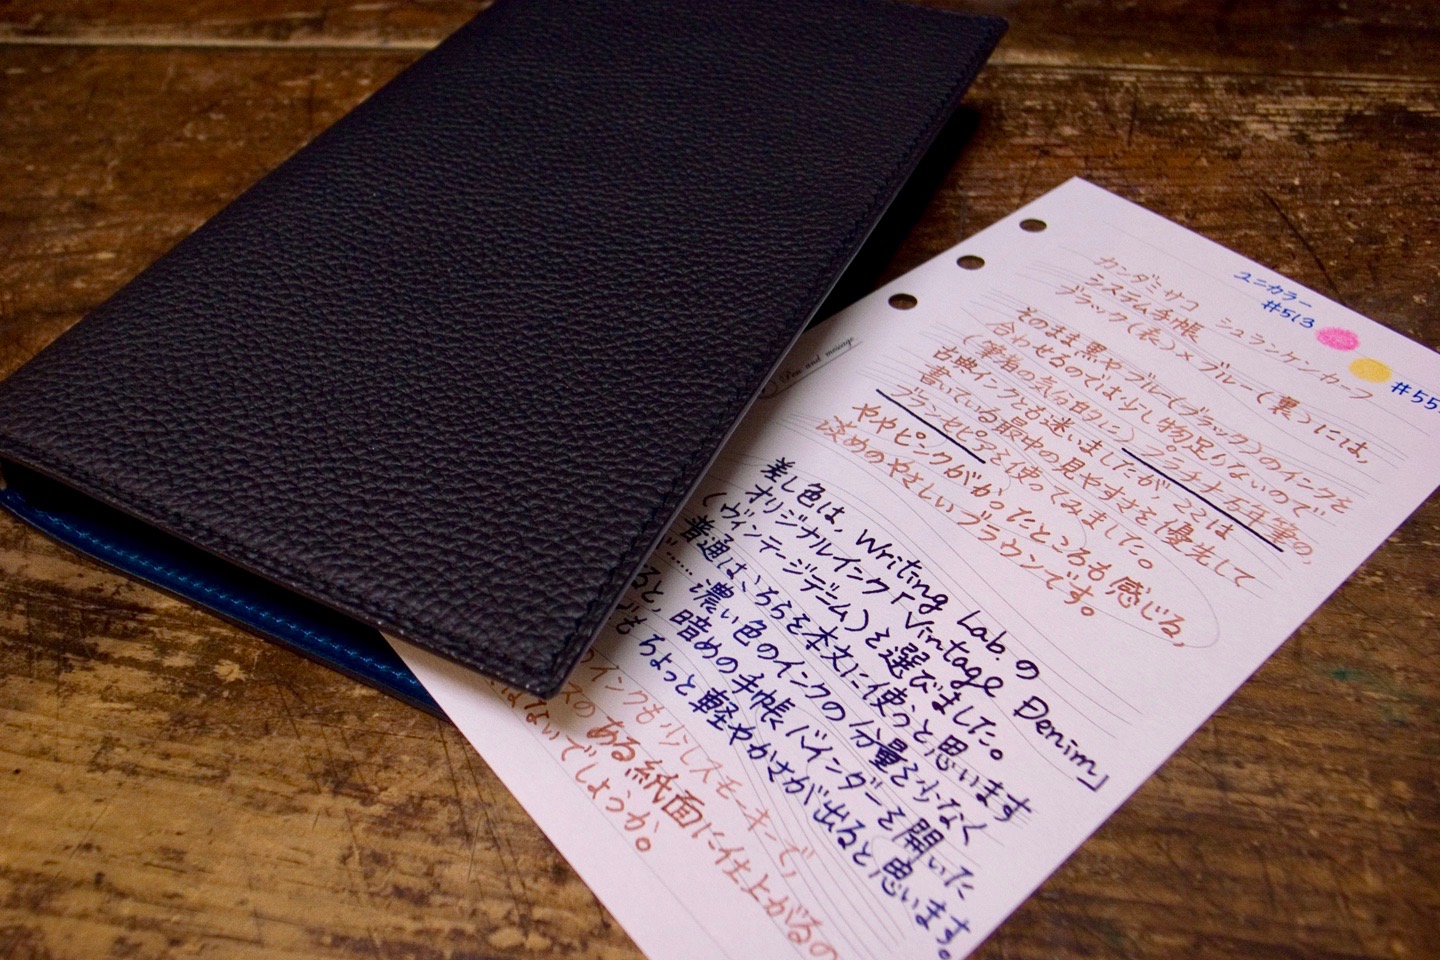 ユニカラー
#513
#55
カンダミサコ
システム手帳 シュランケンカーフ
ブラック(表)×ブルー(裏)には、
そのまま黒やブルー(ブラック)のインクを
合わせるのでは少し物足りないので
(筆者の気分的に)プラチナ万年筆の、
古典インクとも迷いましたが、ココは
書いている最中の見やすさを優先して
ブランセピアを使ってみました。
ややピンクがかったところも感じる、
淡めのやさしいブラウンです。
Pen and message.
差し色は、Writing Lab.の
オリジナルインク「Vintage Denim」
(ヴィンテージデニム)を選びました。
普通はこちらを本文に使うと思います
が…… 濃い色のインクの分量を少なく
ると、暗めの手帳バインダーを開いた
も ちょっと軽やかさが出ると思います。
のインクも少しスモーキーで、
スのある紙面に仕上がるの
はないでしょうか。